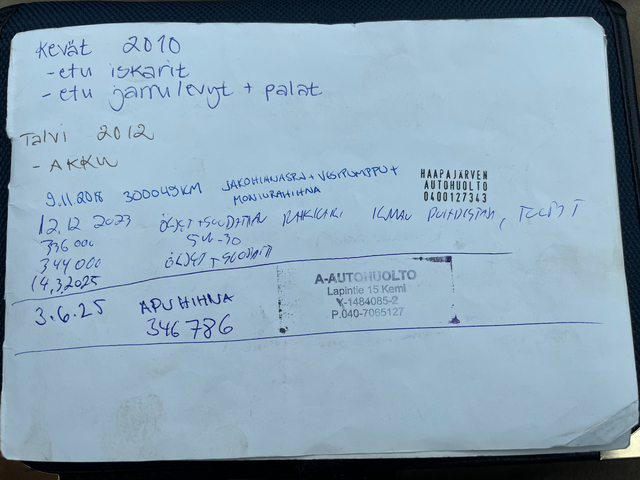 Kevät 2010
- etu iskarit
- etu jarrulevyt + palat
Talvi 2012
- AKKU
9.11.2018 300049KM JAKOHIHNASRJ + VESIPUMPPU +
MONIURAHIHNA
HAAPAJÄRVEN
AUTOHUOLTO
0400127343
12.12 2023 ÖLJYT + SUODATIN RAKKARI ILMAN
336 000 5W-30
344 000 ÖLJYT + SUODATIN
14.3.2025
3.6.25 APUHIHNA
346 786
A-AUTOHUOLTO
Lapintie 15 Kemi
Y-1484085-2
P.040-7065127